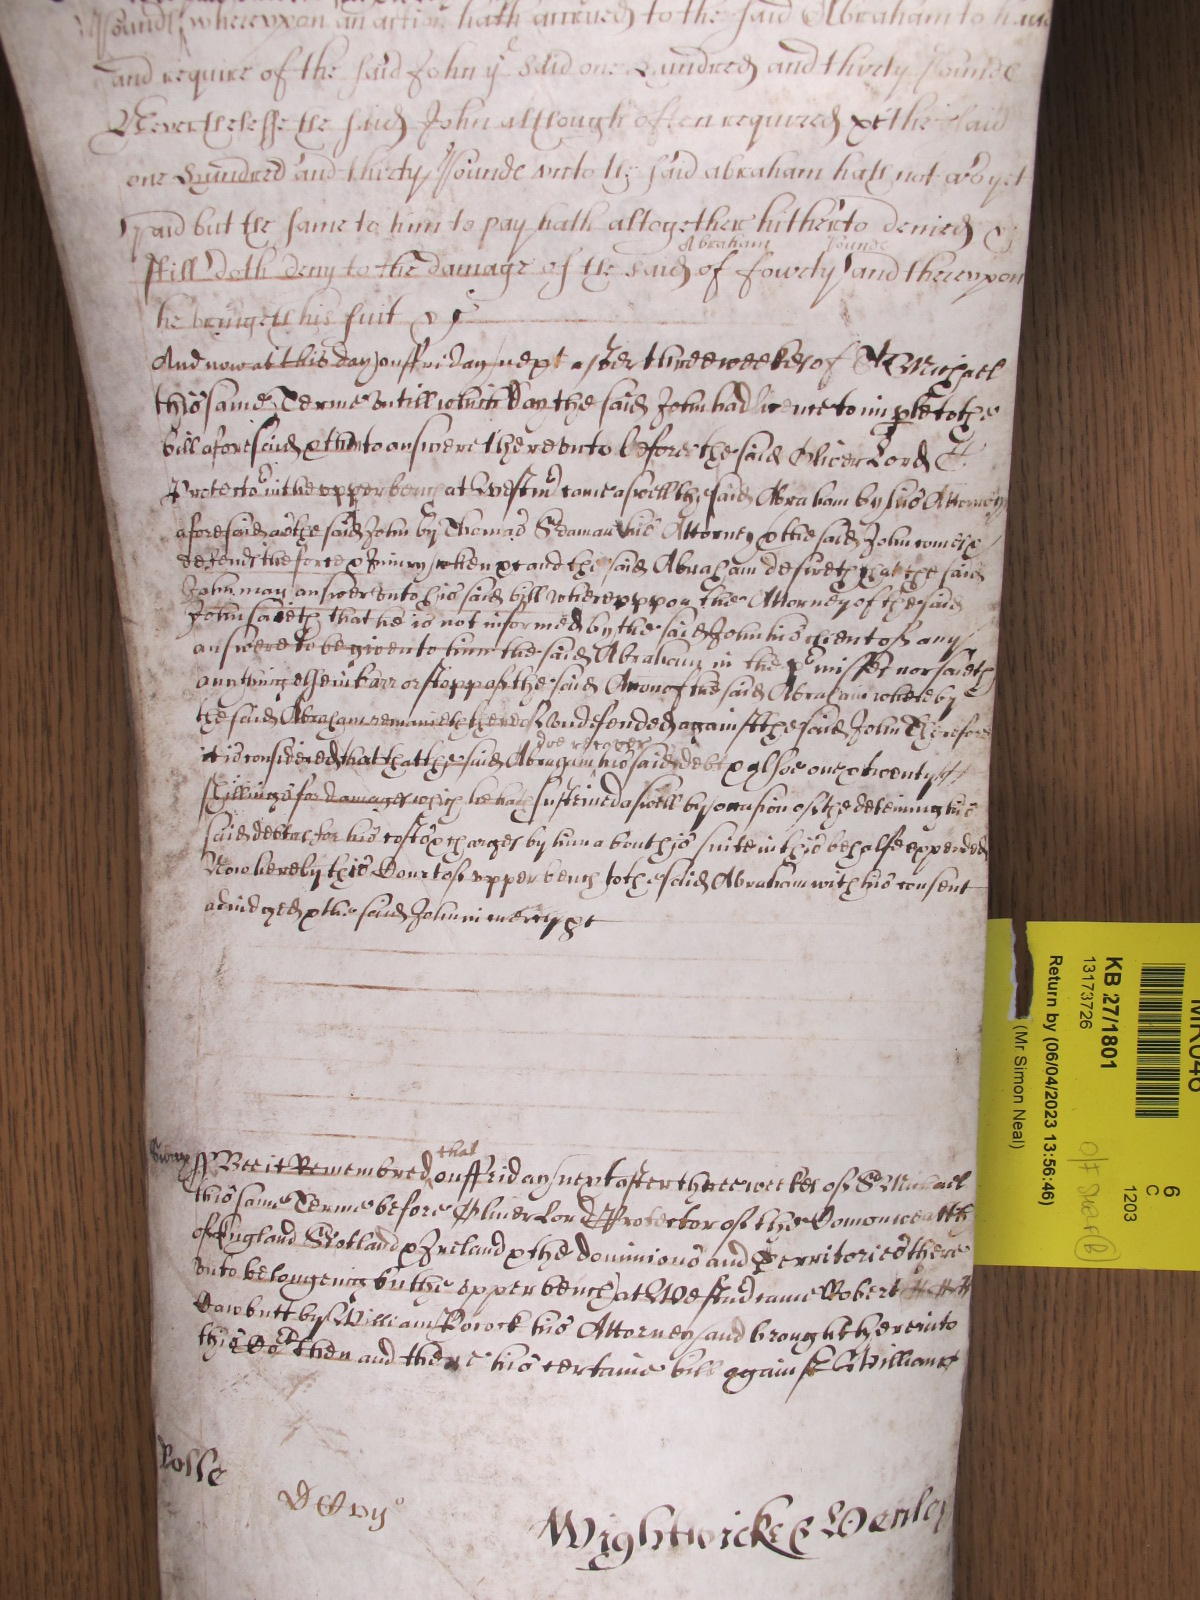 Pounds whereupon an action hath accrued to the said Abraham to have
and require of the said John ye said one Hundred and thirty pounds
Neverthelesse the said John although often required &c the said
one Hundred and thirty Pounds unto the said Abraham hath not as yet
paid but the same to him to pay hath altogether hitherto denied &
still doth deny to the damage of the said Abraham of fowrty pounds and thereupon
he bringeth his suit &c
And now at this day on ffriday next after three weekes of St Michael
this same Terme untill which day the said John had licence to imple to the
bill aforesaid & then to answere thereunto before the said Oliver Lord
Protector in the upper bench at Westmr came aswell the said Abraham by his Attorney
aforesaid as the said John by Thomas Seaman his Attorney & the said John comes &
defends the force & Iniury when &c and the said Abraham desireth that the said
John may answer unto his said bill whereuppon the Attorney of the said
John saieth that he is not informed by the said John his client of any
answere to be given to him the said Abraham in the premisses nor saieth
any thing else in barr or stopp of the said Accon of the said Abraham whereby
the said Abraham remaineth thereof undefended against the said John Therefore
it is considered that that the said Abraham doe recover his said debt & alsoe one & twenty
shillings for damages which he hath susteined aswell by occasion of the deteining his
said debt as for his costs & charges by him about his suite in this behalfe expended
Now here by this Court of upper bench to the said Abraham with his consent
adiudged & the said John in mercy &c
Surry ss Bee it Remembred that on ffriday next after three weekes of St Michael
this same Terme before Oliver Lord Protector of the Comonwealth
of England Scotland & Ireland & the dominions and Territories there
unto belongeing in the upper bench at Westmr came Robert
Dawbutt by William Pocock his Attorney and brought here into
this Cort then and there his certaine bill against William
Rolle
Wightwicke & Wenley
MR046
6
C
1203
KB 27/1801
13173726
Return by (06/04/2023 13:56:46)
(Mr Simon Neal)